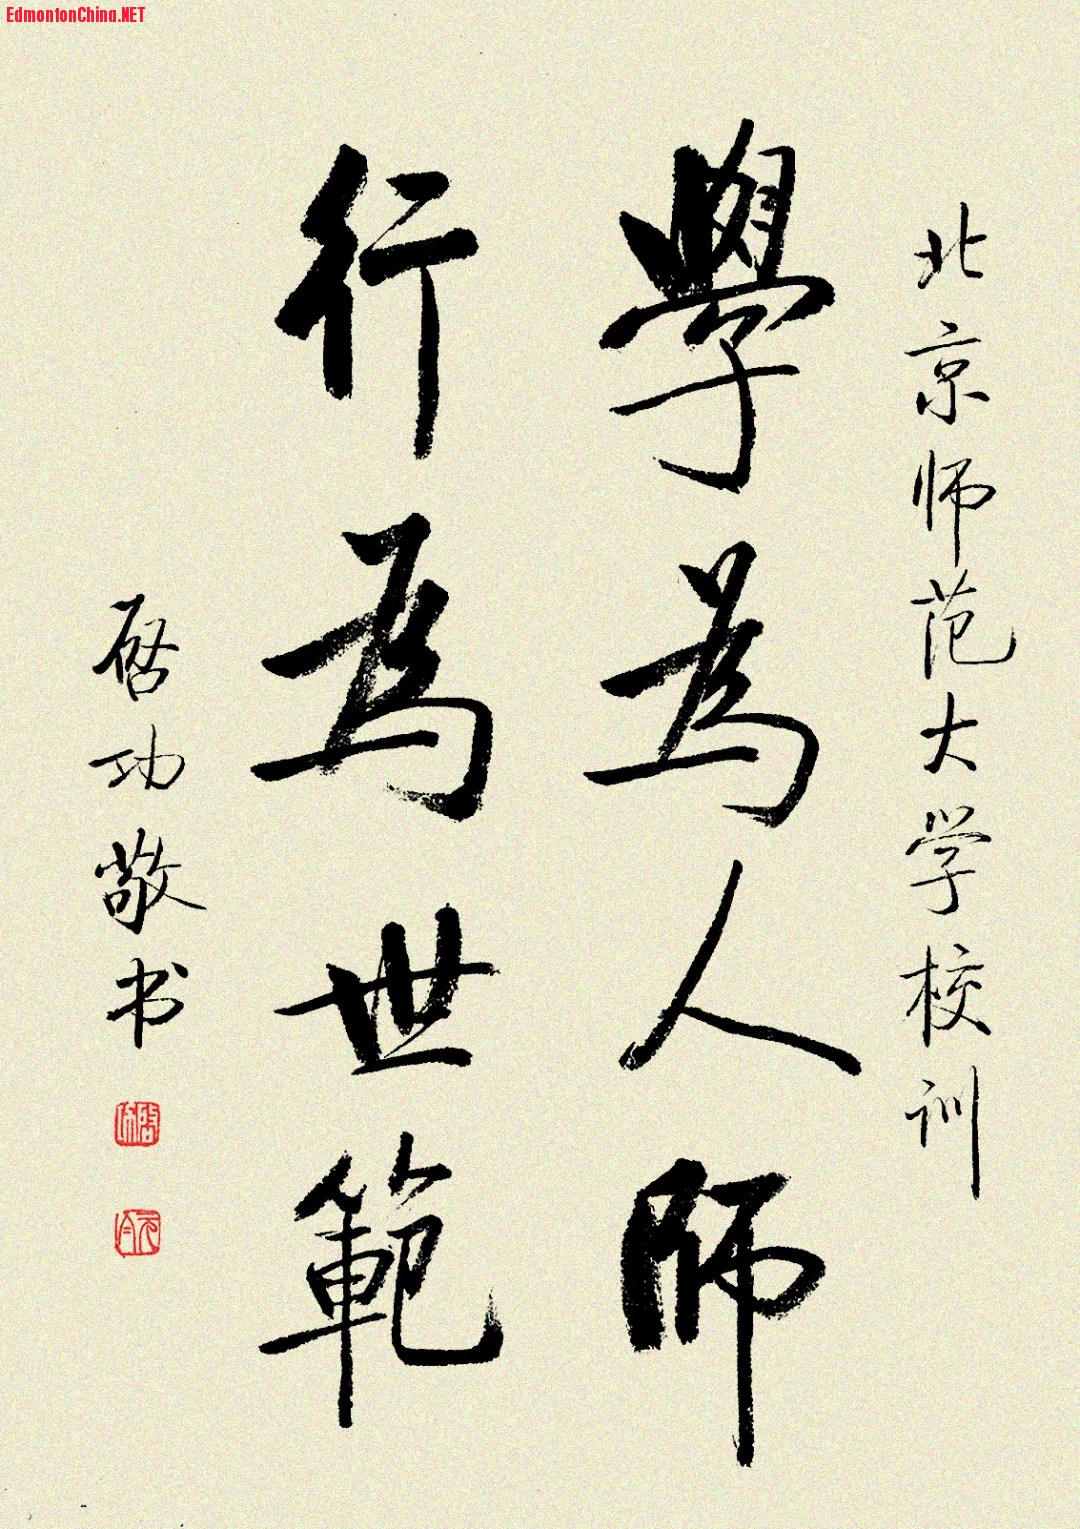 EdmontonChina.NET
北京师范大学校训
學為人师
行為世範
启功敬书
启功
元白